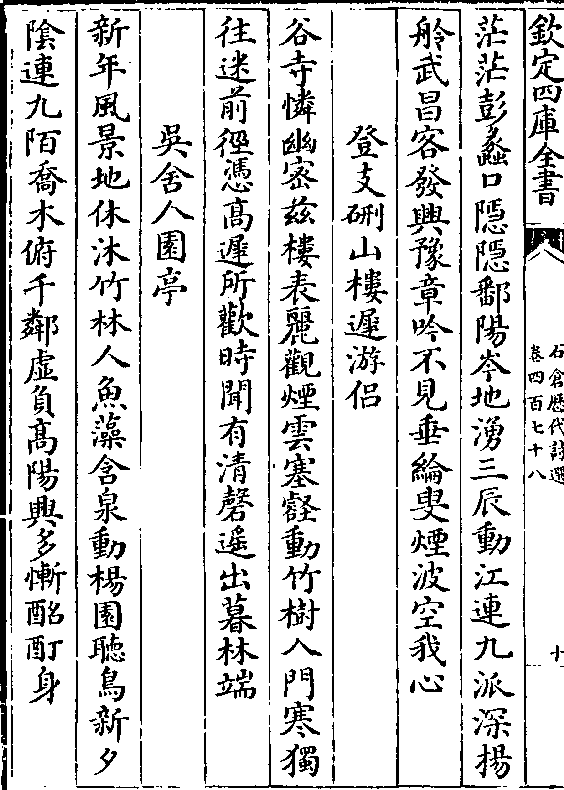 欽定四庫全書
石倉歷代詩選
卷四百七十八
十
茫茫彭蠡口隱隱鄱陽岑地湧三辰動江連九派深揚
舲武昌客發興豫章吟不見垂綸叟煙波空我心
登支硎山樓遲游侣
谷寺憐幽宻兹樓表麗觀煙雲塞壑動竹樹入門寒獨
往迷前徑憑髙遲所歡時聞有清磬遥出暮林端
吳舍人園亭
新年風景地休沐竹林人魚藻含泉動楊園聽鳥新夕
隂連九陌喬木俯千鄰虚負髙陽興多慚酩酊身